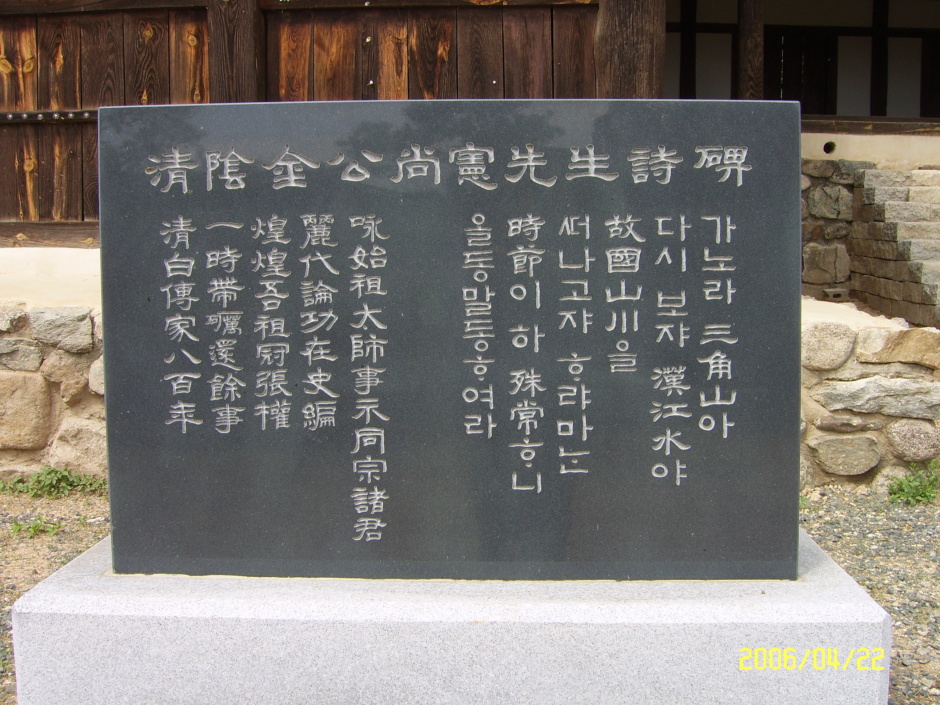 清陰金公尚憲先生詩碑
가노라 三角山아
다시 보쟈 漢江水야
故國山川을
ᄯᅥ나고쟈 ᄒᆞ랴마ᄂᆞᆫ
時節이 하 殊常ᄒᆞ니
올동말동ᄒᆞ여라
咏始祖太師事示同宗諸君
麗代論功在史編
煌煌吾祖冠張權
一時帶礪還餘事
清白傳家八百年
2006/04/22